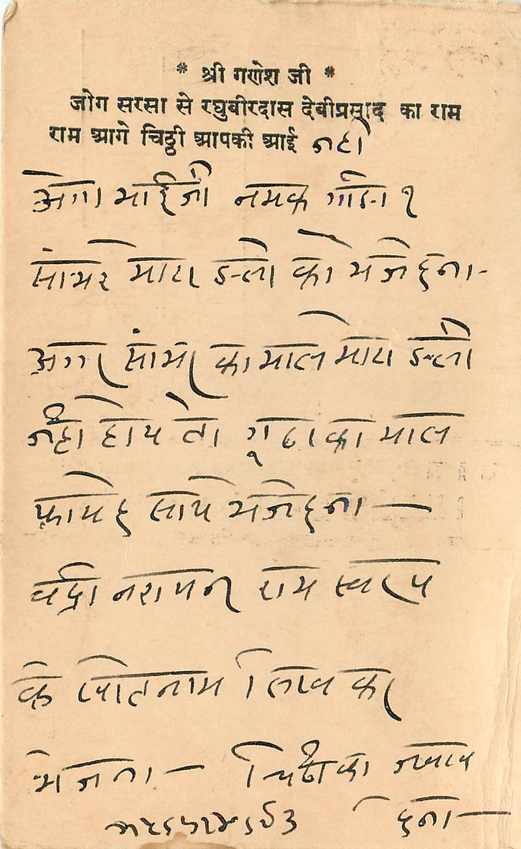 * श्री गणेश जी *
जोग सरसा से रघुबीरदास देवीप्रसाद का राम
राम आगे चिठ्ठी आपकी आई नहीं
भाईजी नमक गाडा १
सांभर मोटा डली का भेज देना-
अगर सांभर का माल मोटा डली
नहीं होय तो गूढा का माल
साथ भेज देना —
बद्री नरायन राम स्वरुप
के नाम लिख कर
भेजना — चिठी का जवाब
देना —